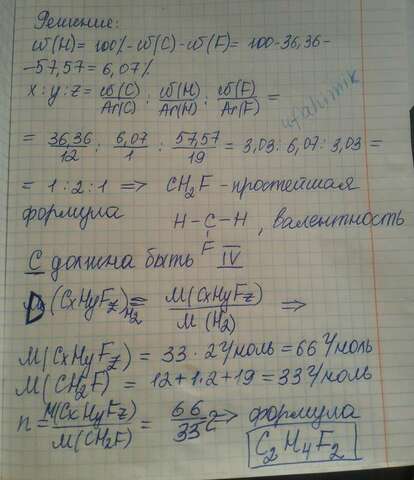 Решение:
ω(H) = 100% - ω(C) - ω(F) = 100 - 36,36 -
- 57,57 = 6,07%
x : y : z = ω(C)/Ar(C) : ω(H)/Ar(H) : ω(F)/Ar(F) =
ufahimik
= 36,36/12 : 6,07/1 : 57,57/19 = 3,03 : 6,07 : 3,03 =
= 1 : 2 : 1 => CH₂F - простейшая
формула H - C - H , валентность
F
C должна быть IV
D(CxHyFz)H₂ = M(CxHyFz)/M(H₂) =>
M(CxHyFz) = 33 · 2 г/моль = 66 г/моль
M(CH₂F) = 12 + 1·2 + 19 = 33 г/моль
n = M(CxHyFz)/M(CH₂F) = 66/33 = 2 => формула
C₂H₄F₂